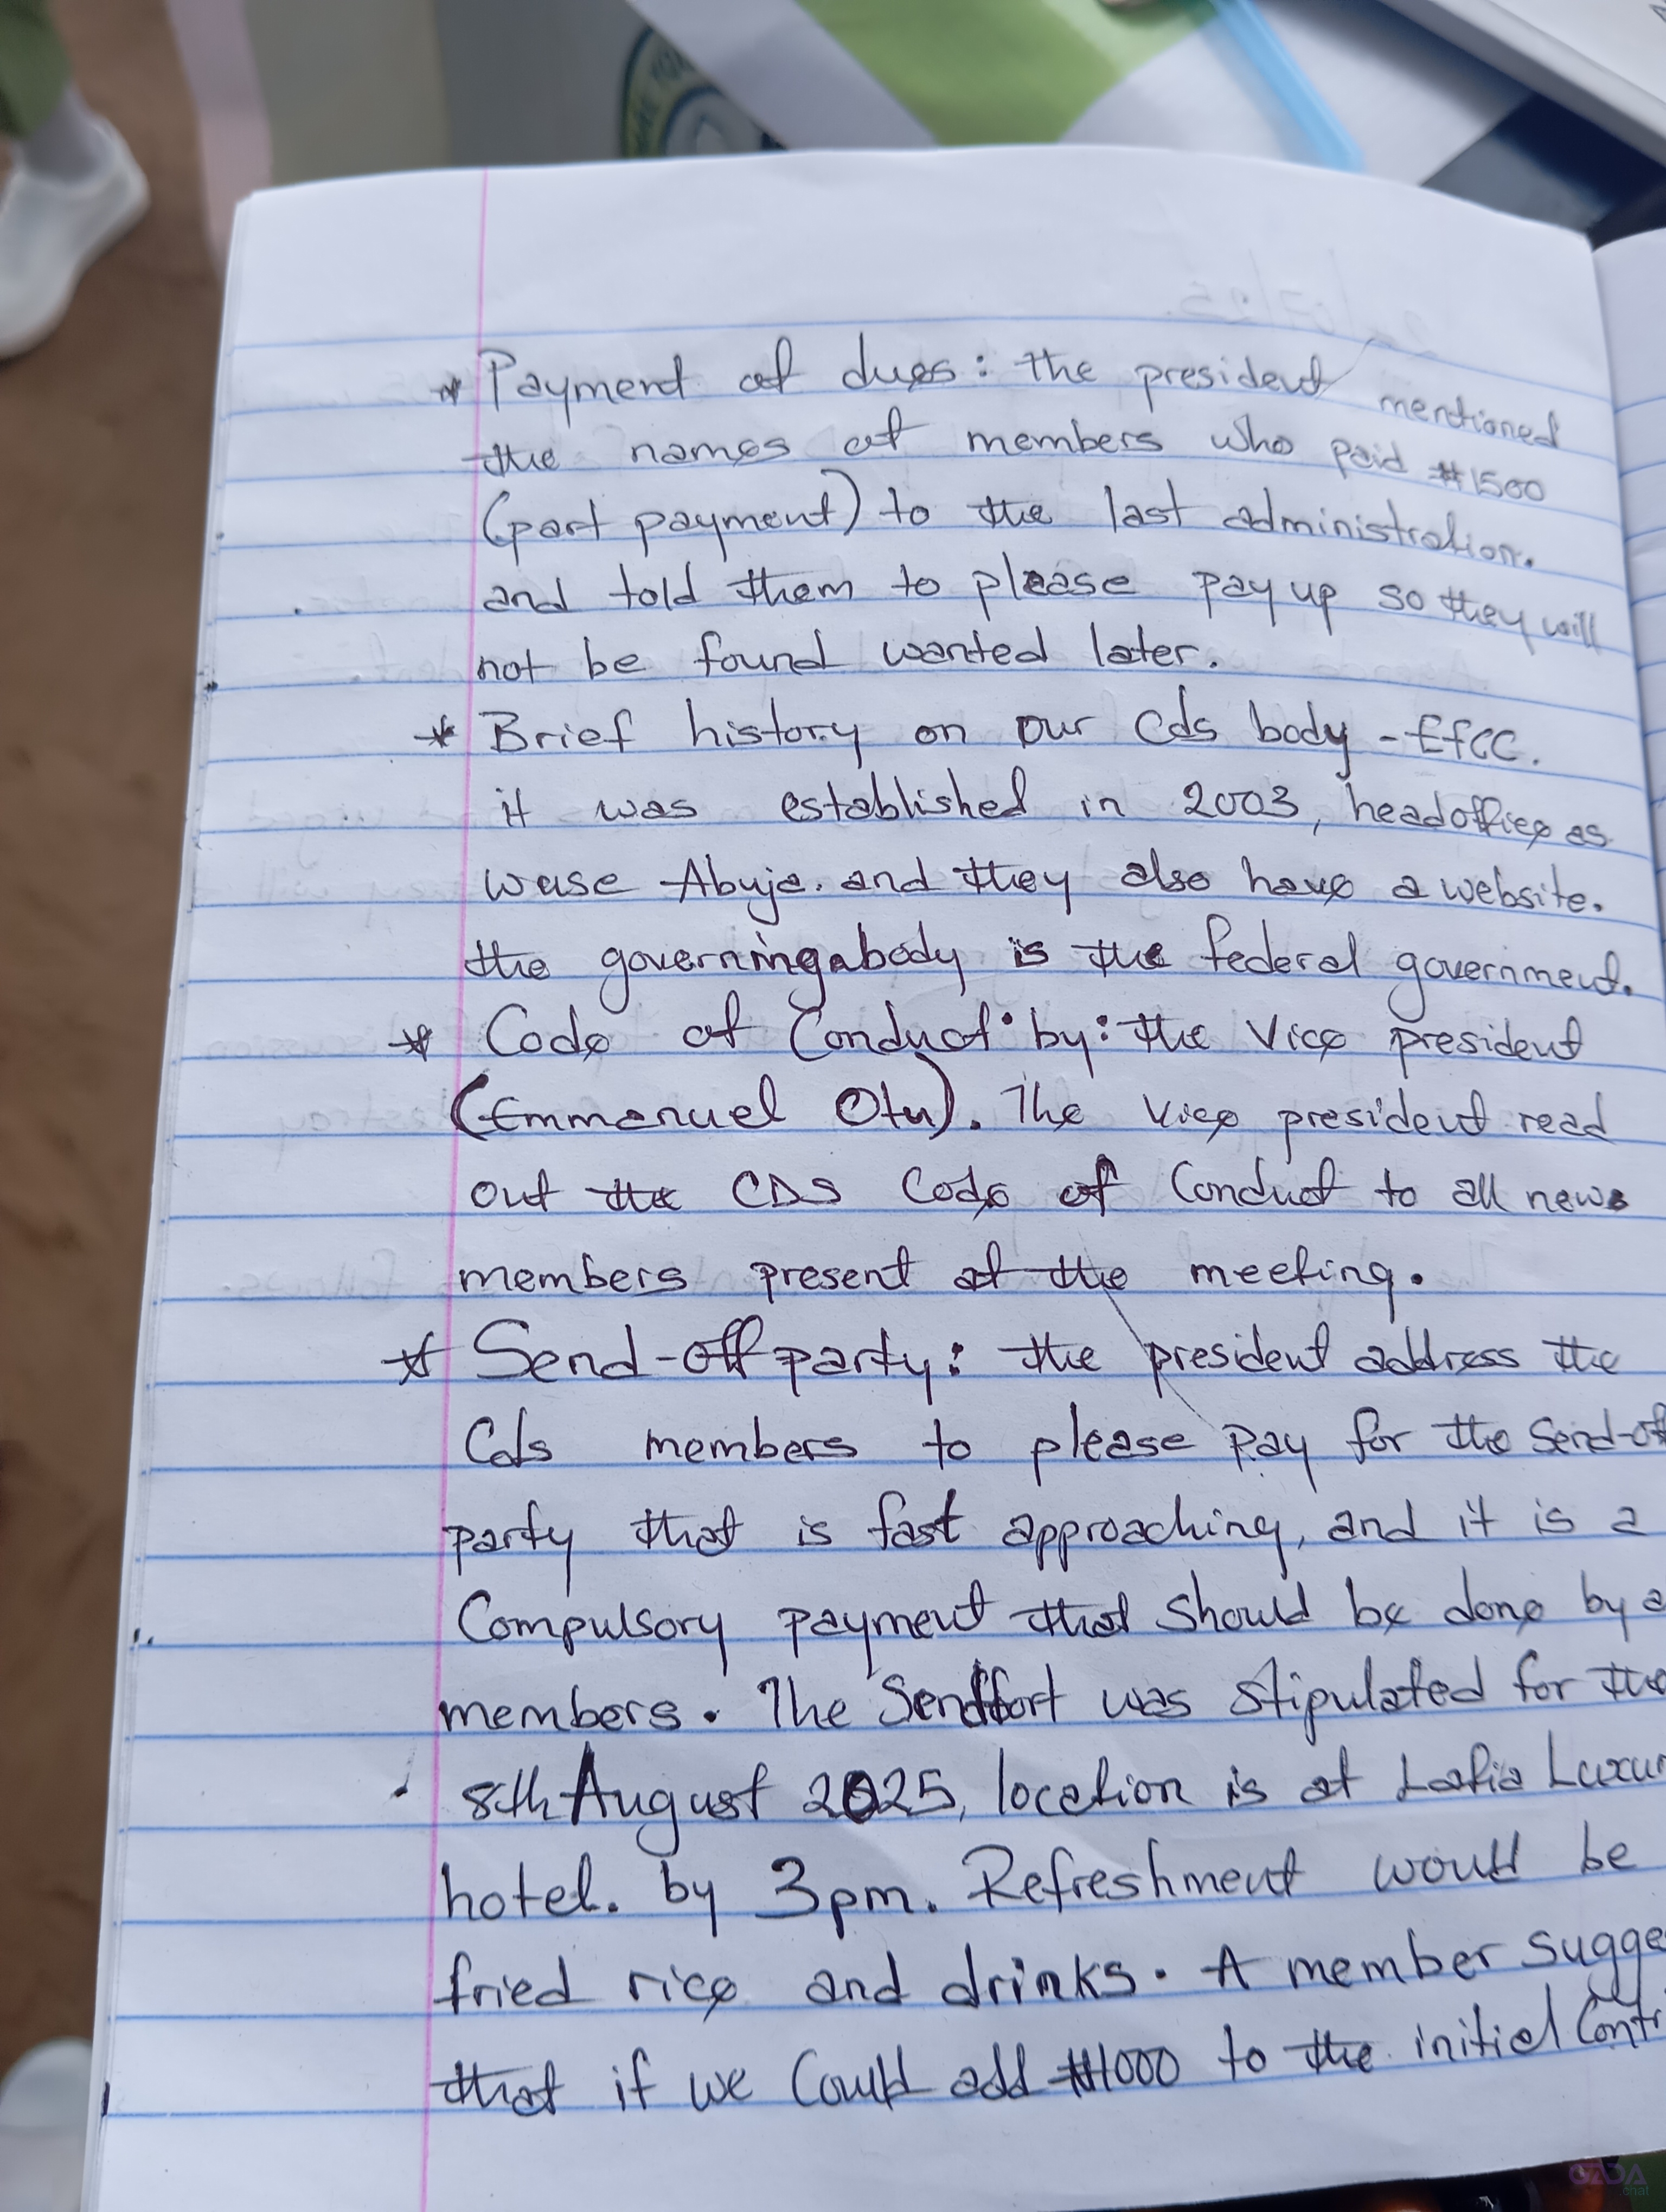 * Payment of dues: the president mentioned
the names of members who paid #1500
(part payment) to the last administration.
and told them to please pay up so they will
not be found wanted later.
* Brief history on our Cds body - EFCC.
it was established in 2003, headoffice as
wuse Abuja. and they also have a website.
the governingabody is the federal government.
* Code of Conduct by: the Vice president
(Emmanuel Otu). The Vice president read
out the CDS Code of Conduct to all new
members present at the meeting.
* Send-off party: the president address the
Cds members to please pay for the Send-of
party that is fast approaching, and it is a
Compulsory payment that should be done by a
members. The Sendfort was stipulated for the
8th August 2025, location is at Lafia Luxur
hotel. by 3pm. Refreshment would be
fried rice and drinks. A member sugge
that if we Could add #1000 to the initial Contr